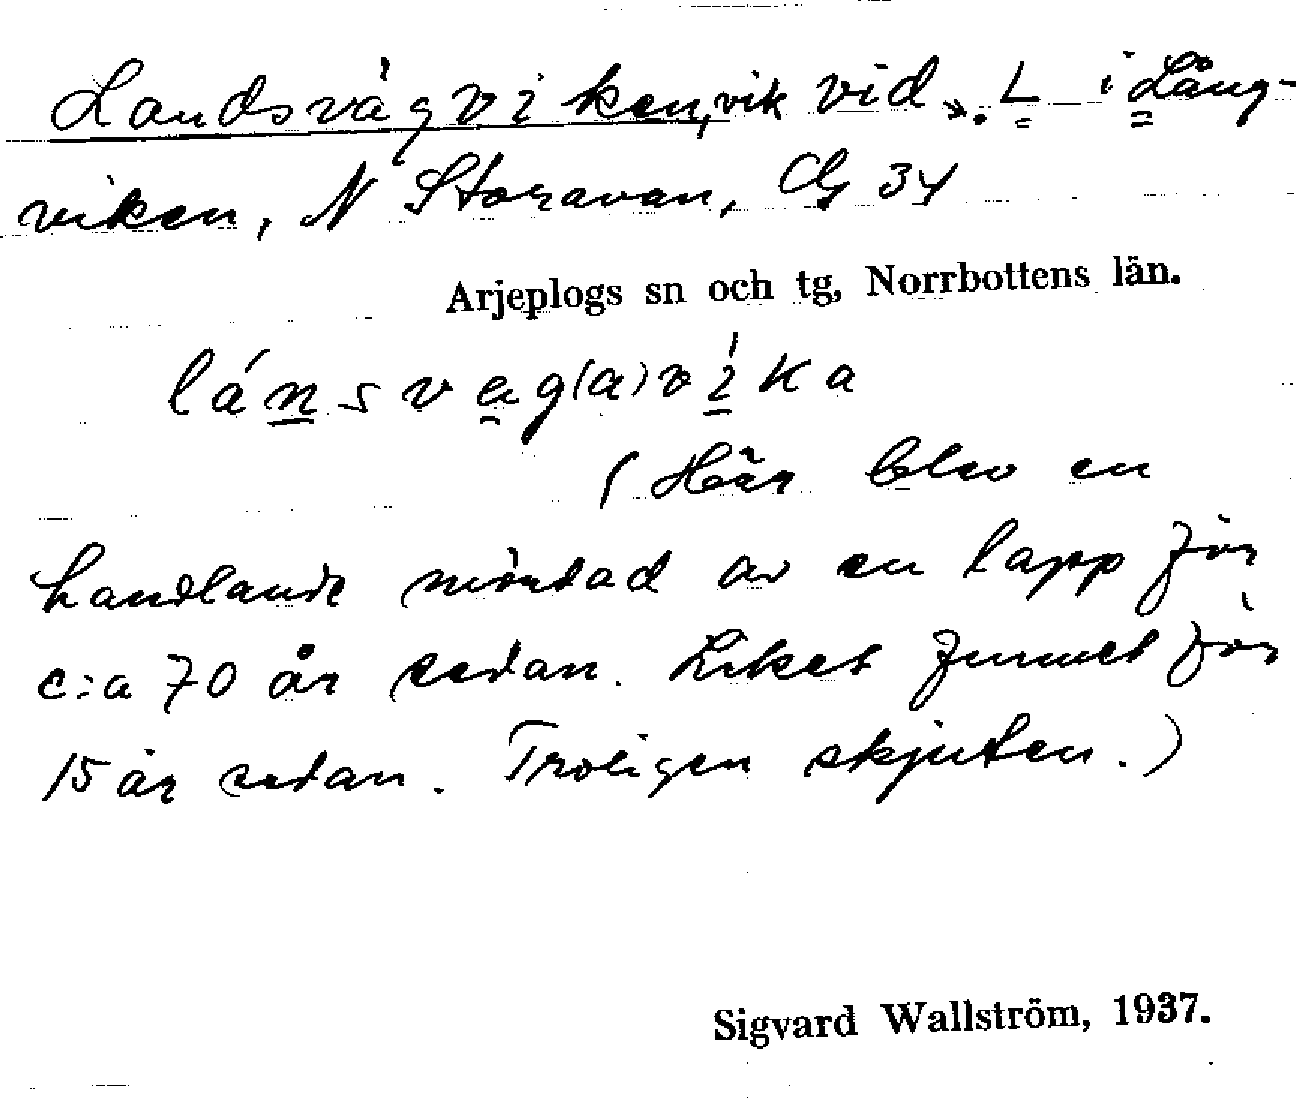 Landsvägviken, vik vid L i Lång-
viken, N Storavan, G 34
Arjeplogs sn och tg, Norrbottens län.
lánsvag(a)vika
(Här blev en
handlande mördad av en lapp för
c:a 70 år sedan. Liket funnet för
15 år sedan. Troligen skjuten.)
Sigvard Wallström, 1937.